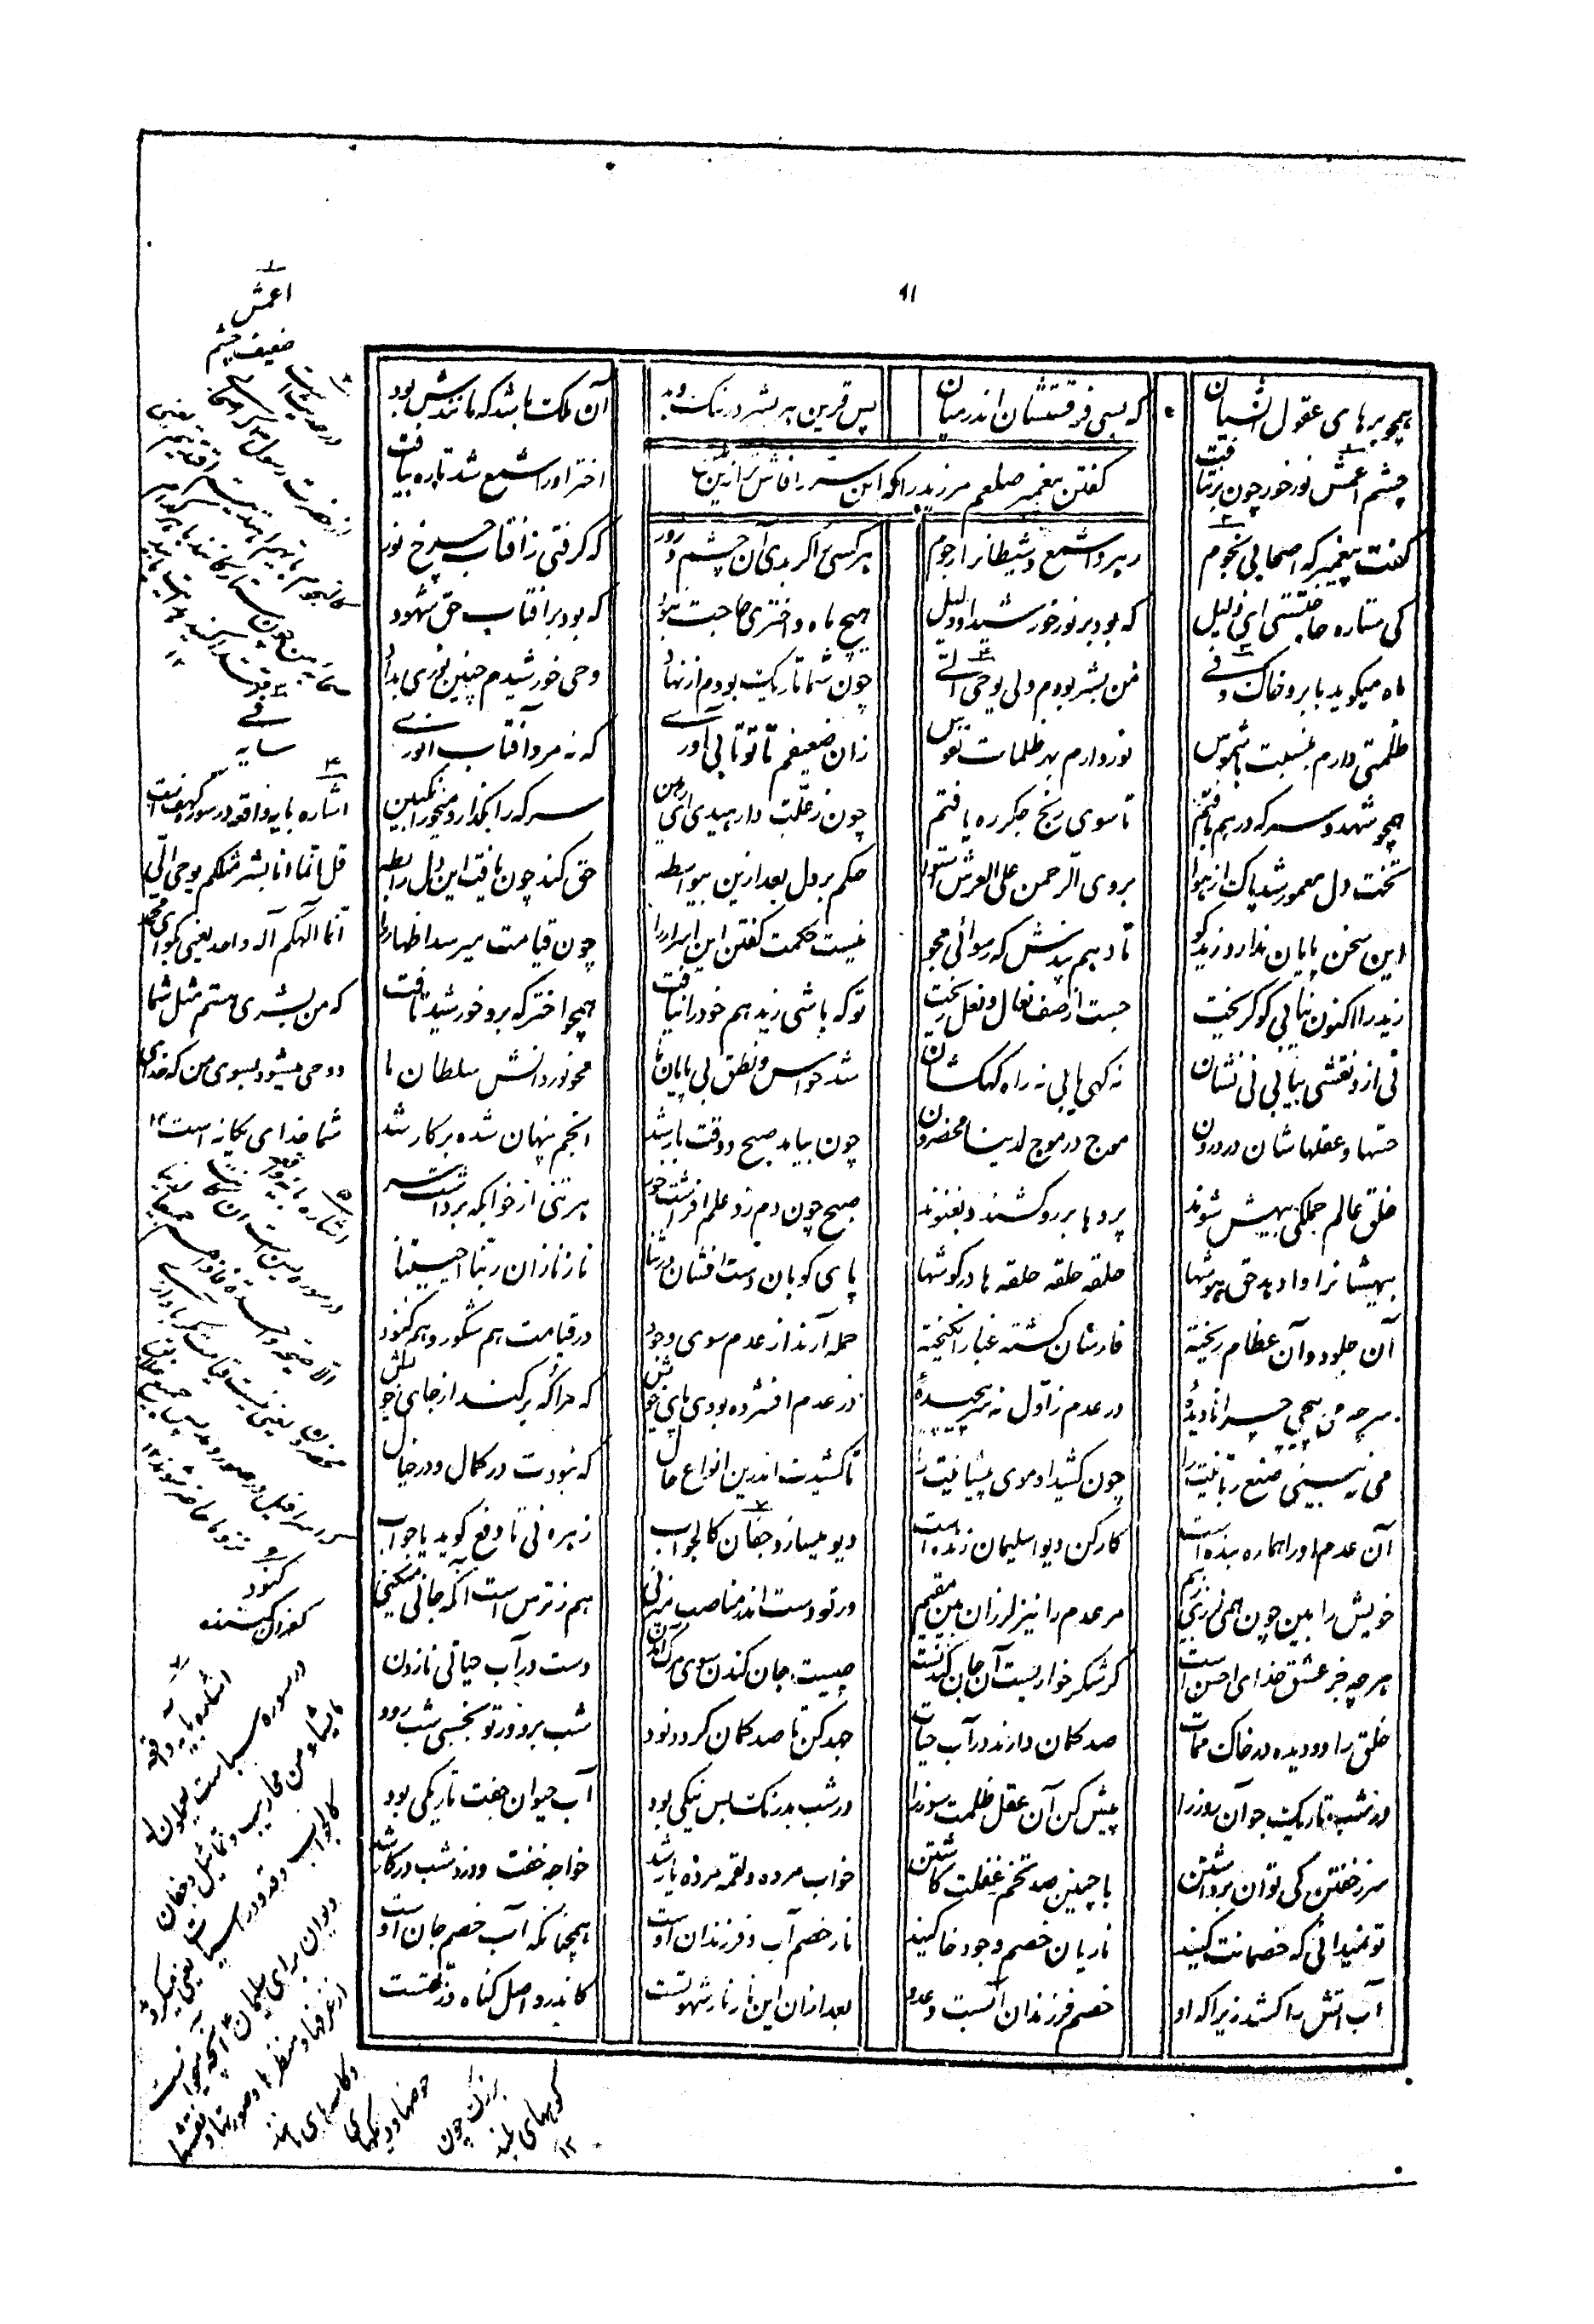 ۹۱
همچو پرهای عقول انسیان
که بسی فرقستشان اندر میان
پس قرین هر بشر در نیک و بد
آن ملک باشد که مانندش بود
چشم اعمش نور خور چون بر نتافت
اختر او را شمع شد تا ره بیافت
گفتن پیغمبر صلعم مر زید را که این سر را فاش تر ازین مگو
گفت پیغمبر که اصحابی نجوم
رهروانرا شمع و شیطانرا رجوم
هر کسی را گر بدی آن چشم و زور
که گرفتی ز آفتاب چرخ نور
کی ستاره حاجتستی ای ذلیل
که بود بر نور خورشید او دلیل
هیچ ماه و اختری حاجت نبود
که بود بر آفتاب حق شهود
ماه میگوید بابر و خاک و فی
من بشر بودم ولی یوحی الی
چون شما تاریک بودم از نهاد
وحی خورشیدم چنین نوری بداد
ظلمتی دارم بنسبت با شموس
نور دارم بهر ظلمات نفوس
زان ضعیفم تا تو تابی آوری
که نه مرد آفتاب انوری
همچو شهد و سرکه در هم بافتم
تا سوی رنج جگر ره یافتم
چون ز علت وارهیدی ای رهین
سرکه را بگذار و میخور انگبین
تخت دل معمور شد پاک از هوا
بر وی الرحمن علی العرش استوی
حکم بر دل بعد ازین بیواسطه
حق کند چون یافت این دل رابطه
این سخن پایان ندارد زید کو
تا دهم پندش که رسوائی مجو
نیست حکمت گفتن این اسرار را
چون قیامت میرسد اظهار را
زید را اکنون نیابی کو گریخت
جست از صف نعال و نعل ریخت
تو که باشی زید هم خود را نیافت
همچو اختر که برو خورشید تافت
نی ازو نقشی بیابی نی نشان
نه کهی یابی نه راه کهکشان
شد حواس و نطق بی پایان ما
محو نور دانش سلطان ما
حسها و عقلهاشان در درون
موج در موج لدینا محضرون
چون بیاید صبح و وقت بار شد
انجم پنهان شده بر کار شد
خلق عالم جملگی بیهش شوند
پردها بر رو کشند و بغنوند
صبح چون دم زد علم افراشت خور
هر تنی از خوابگه برداشت سر
بیهشانرا وا دهد حق هوشها
حلقه حلقه حلقه ها در گوشها
پای کوبان دست افشان در ثنا
ناز نازان ربنا احییتنا
آن جلود و آن عظام ریخته
فارسان گشته غبار انگیخته
حمله آرند از عدم سوی وجود
در قیامت هم شکور و هم کنود
سر چه می پیچی چرا نادیده
در عدم ز اول نه سر پیچیده
در عدم افشرده بودی پای خویش
که مرا که برکند از جای خویش
می نه بینی صنع ربانیت را
چون کشید او موی پیشانیت را
تا کشیدت اندرین انواع حال
که نبودت در گمان و در خیال
آن عدم او را هماره بنده است
کار کن دیوا سلیمان زنده است
دیو میسازد جفان کالجواب
زهره نی تا دفع گوید یا جواب
خویش را بین چون همی لرزی ز بیم
مر عدم را نیز لرزان بین مقیم
ور تو دست اندر مناصب میزنی
هم ز ترس است آنکه جانی میکنی
هر چه جز عشق خدای احسن است
گر شکر خواریست آن جان کندنست
چیست جان کندن سوی مرگ آمدن
دست در آب حیاتی نازدن
خلق را دو دیده در خاک ممات
صد گمان دارند در آب حیات
جهد کن تا صد گمان گردد نود
شب برو ور تو بخسبی شب رود
در شب تاریک جو آن روز را
پیش کن آن عقل ظلمت سوز را
در شب بدرنگ بس نیکی بود
آب حیوان جفت تاریکی بود
سر ز خفتن کی توان برداشتن
با چنین صد تخم غفلت کاشتن
خواب مرده و لقمه مرده یار شد
خواجه خفت و دزد شب در کار شد
تو نمیدانی که خصمانت کیند
ناریان خصم وجود خاکیند
نار خصم آب و فرزندان اوست
همچنانکه آب خصم جان اوست
آب آتش را کشد زیرا که او
خصم فرزندان آبست و عدو
بعد ازان این نار نار شهوتست
کاندرو اصل گناه و زلتست
اعمش
ضعیف چشم
فی
سایه
اشاره بآیه واقع در سوره کهف است
قل انما انا بشر مثلکم یوحی الی
انما الهکم اله واحد یعنی بگو ای محمد
که من بشری هستم مثل شما
و وحی میشود بسوی من که خدای
شما خدای یگانه است ۱۲
کنود
کفران کننده
اشاره بآیه واقعه
در سوره سبا است یعملون له
ما یشاء من محاریب و تماثیل و جفان
کالجواب و قدور راسیات یعنی میکردند
دیوان برای سلیمان آنچه میخواست
از غرفها و منظرها و صورتها و نقشها
و کاسهای مانند
حوضها و دیگهای
بزرگ چون
کوههای بلند
۱۲